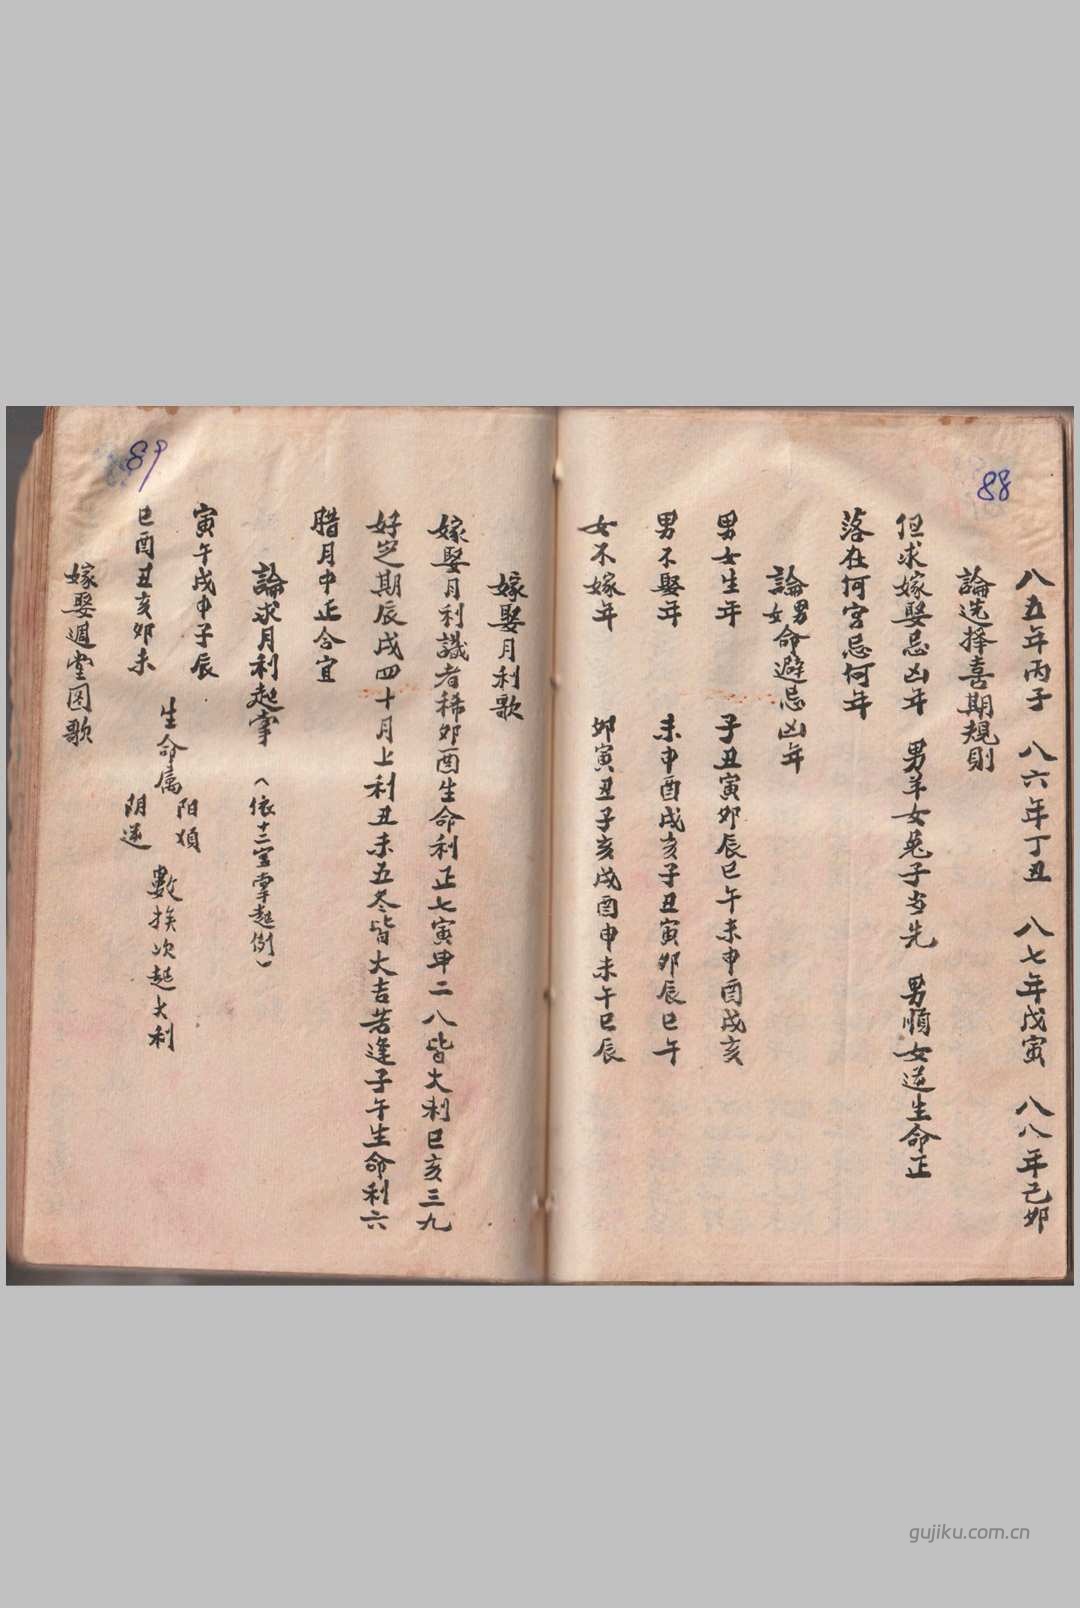 88
八五年丙子　八六年丁丑　八七年戊寅　八八年己卯
論选择喜期規則
但求嫁娶忌凶年　男羊女兔子当先　男順女逆生命正
落在何宮忌何年
論男女命避忌凶年
男女生年　子丑寅卯辰巳午未申酉戌亥
男不娶年　未申酉戌亥子丑寅卯辰巳午
女不嫁年　卯寅丑子亥戌酉申未午巳辰
89
嫁娶月利歌
嫁娶月利識者稀卯酉生命利正七寅申二八皆大利巳亥三九
好定期辰戌四十月上利丑未五冬皆大吉若逢子午生命利六
腊月中正合宜
論求月利起掌（依十二宮掌起例）
寅午戌申子辰
巳酉丑亥卯未
生命属
阳順
阴逆
數挨次起大利
嫁娶週堂图歌
gujiku.com.cn